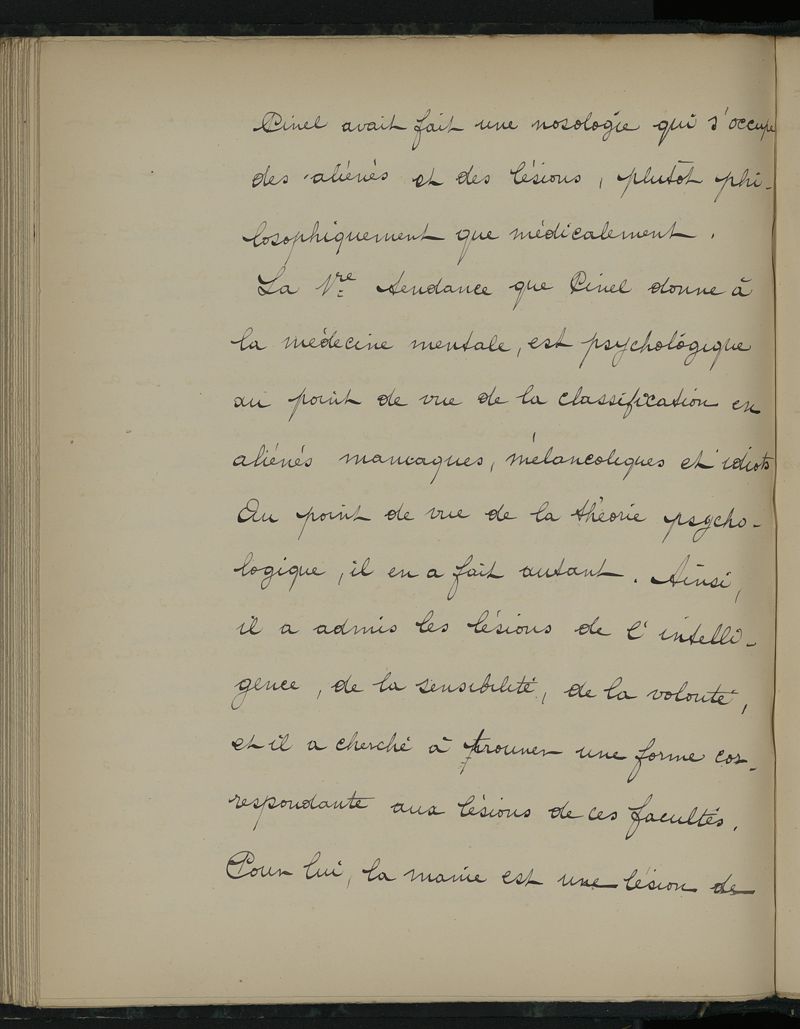 Pinel avait fait une nosologie qui s'occupe
des aliénés et des lésions, plutôt phi-
losophiquement que médicalement.
La 1re tendance que Pinel donne à
la médecine mentale, est psychologique
au point de vue de la classification en
aliénés maniaques, mélancoliques et idiots
Au point de vue de la théorie psycho-
logique, il en a fait autant. Ainsi,
il a admis les lésions de l'intelli-
gence, de la sensibilité, de la volonté,
et il a cherché à trouver une forme cor-
respondante aux lésions de ces facultés.
Pour lui, la manie est une lésion de